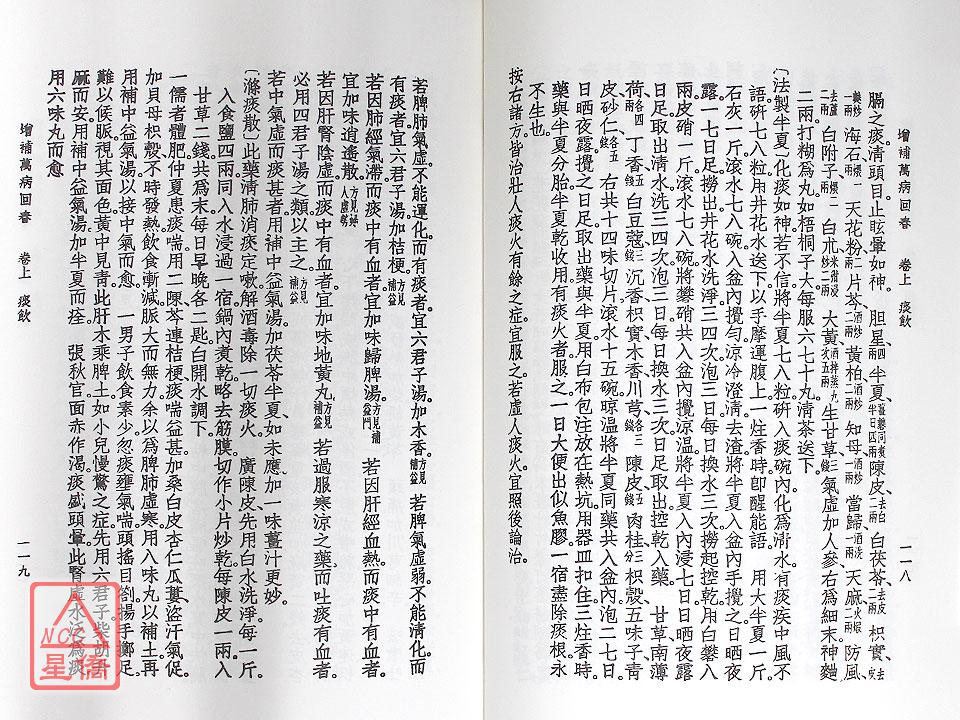 增補萬病回春　卷上　痰飲
一一八
膈之痰清頭目止眩暈如神　胆星四兩半夏陳皮去白二兩白茯苓去皮二兩枳實去穰
麩炒一兩海石煅一兩天花粉二兩片芩酒炒二兩黃柏酒炒二兩知母酒炒一兩當歸酒洗一兩天麻火煨二兩防風
去蘆二兩白附子煨二兩白朮米泔浸炒二兩大黃酒拌蒸九次五兩生甘草三錢氣虛加人參右爲細末神麯
二兩打糊爲丸如梧桐子大每服六七十丸清茶送下
〔法製半夏〕化痰如神若不信將半夏七八粒硏入痰碗內化爲清水有痰疾中風不
語硏七八粒用井花水送下以手摩運腹上一炷香時卽醒能語　用大半夏一斤
石灰一斤滾水七八碗入盆內攪勻涼冷澄清去渣將半夏入盆內手攪之日晒夜
露一七日足撈出井花水洗淨三四次泡三日每日換水三次撈起控乾用白礬八
兩皮硝一斤滾水七八碗將礬硝共入盆內攪涼溫將半夏入內浸七日日晒夜露
日足取出清水洗三四次泡三日每日換水三次日足取出控乾入藥　甘草南薄
荷各四兩丁香五錢白豆蔻三錢沉香枳實木香川芎各三錢陳皮五錢肉桂三分枳殼五味子靑
皮砂仁各五錢右共十四味切片滾水十五碗晾溫將半夏同藥共入盆內泡二七日
日晒夜露攪之日足取出藥與半夏用白布包注放在熱坑用器皿扣住三炷香時
藥與半夏分胎半夏乾收用有痰火者服之一日大便出似魚膠一宿盡除痰根永
不生也
按右諸方皆治壯人痰火有餘之症宜服之若虛人痰火宜照後論治
若脾肺氣虛不能運化而有痰者宜六君子湯加木香方見補益　若脾氣虛弱不能清化而
有痰者宜六君子湯加桔梗方見補益
若因肺經氣滯而痰中有血者宜加味歸脾湯方見補益門　若因肝經血熱而痰中有血者
宜加味逍遙散方見婦人虛勞
若因肝腎陰虛而痰中有血者宜加味地黃丸方見補益　若過服寒涼之藥而吐痰有血者
必用四君子湯之類以主之方見補益
若中氣虛而痰甚者用補中益氣湯加茯苓半夏如未應加一味薑汁更妙
〔滌痰散〕此藥清肺消痰定嗽解酒毒除一切痰火　廣陳皮先用白水洗淨每一斤
入食鹽四兩同入水浸過一宿鍋內煑乾略去筋膜切作小片炒乾每陳皮一兩入
甘草二錢共爲末每日早晚各二匙白開水調下
一儒者體肥仲夏患痰喘用二陳芩連桔梗痰喘益甚加桑白皮杏仁瓜蔞盜汗氣促
加貝母枳殼不時發熱飲食漸減脈大而無力余以爲脾肺虛寒用八味丸以補土再
用補中益氣湯以接中氣而愈　一男子飲食素少忽痰壅氣喘頭搖目劄揚手擲足
難以候脈視其面色黃中見靑此肝木乘脾土如小兒慢驚之症先用六君子柴胡升
麻而安用補中益氣湯加半夏而痊　張秋官面赤作渴痰盛頭暈此腎虛水泛爲痰
用六味丸而愈
增補萬病回春　卷上　痰飲
一一九
NCC
星僑